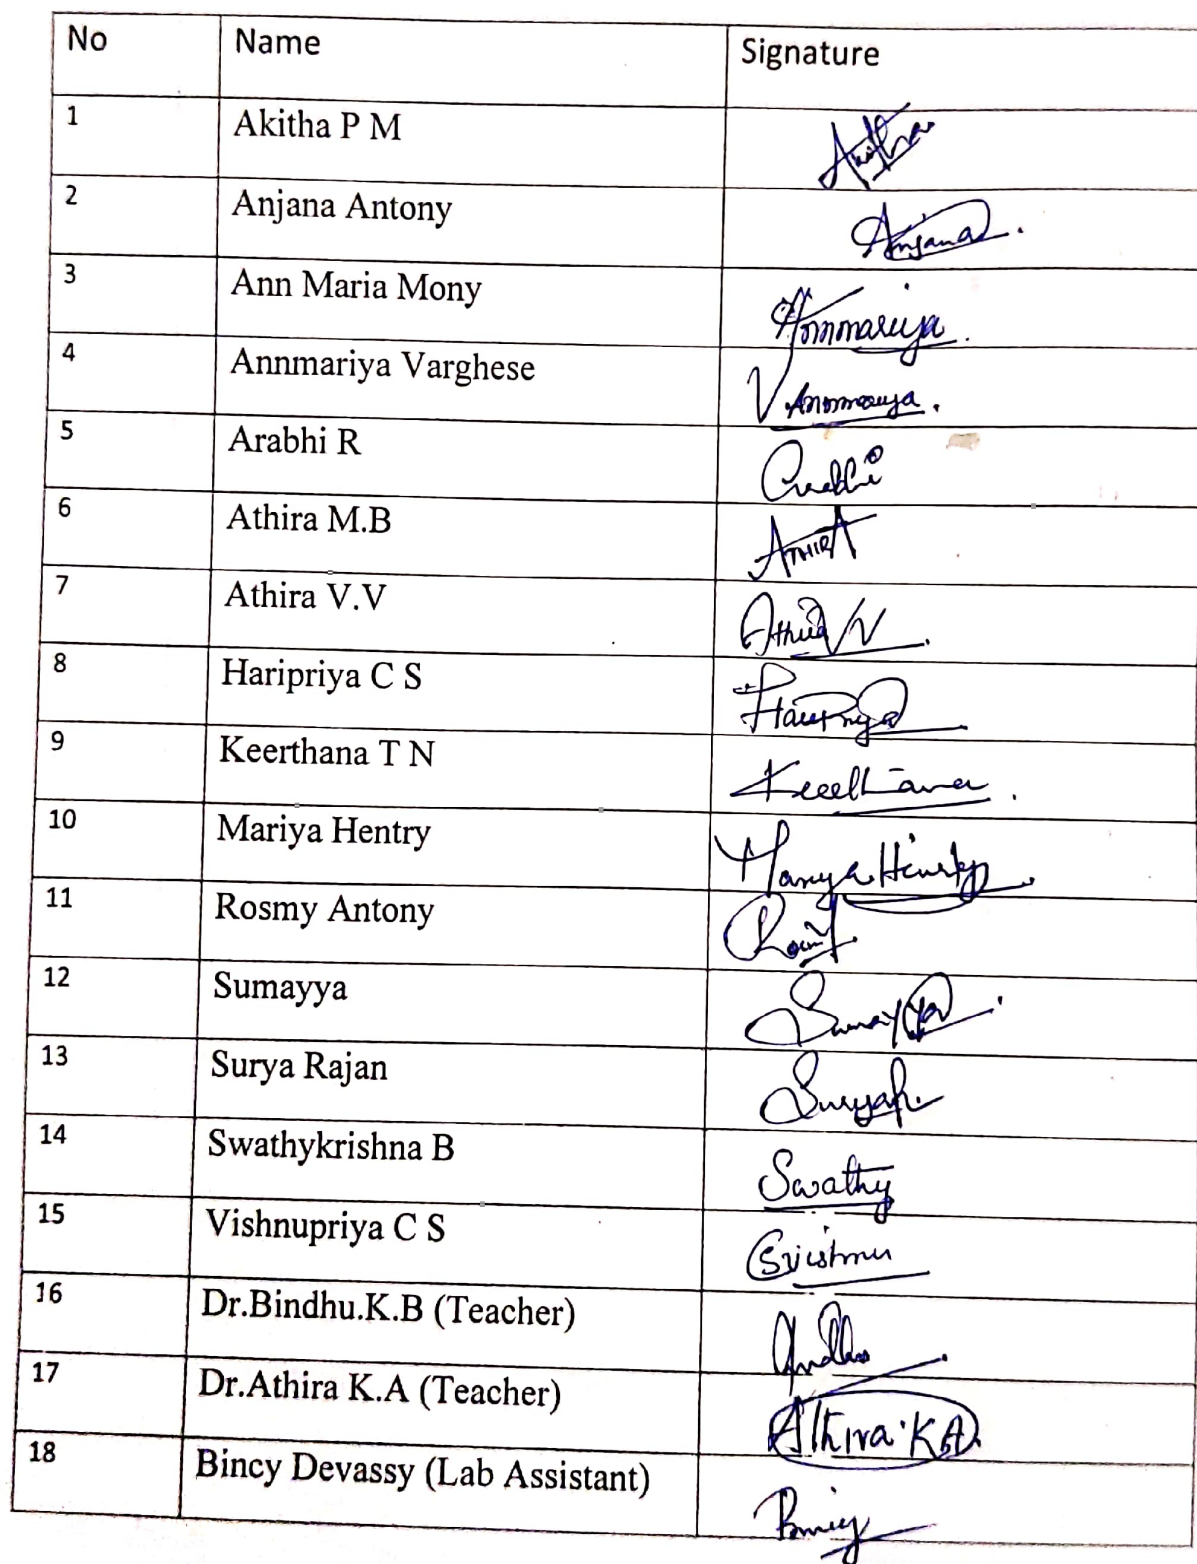 No Name Signature
1 Akitha P M Akitha
2 Anjana Antony Anjana
3 Ann Maria Mony Annmariya
4 Annmariya Varghese V Annmariya.
5 Arabhi R Arabhi
6 Athira M.B ATHIRA
7 Athira V.V Athira VV
8 Haripriya C S Haripriya
9 Keerthana T N Keerthana
10 Mariya Hentry Mariya Hentry
11 Rosmy Antony Rosmy
12 Sumayya Sumayya
13 Surya Rajan Surya R.
14 Swathykrishna B Swathy
15 Vishnupriya C S
16 Dr.Bindhu.K.B (Teacher) Bindhu
17 Dr.Athira K.A (Teacher) Athira K A.
18 Bincy Devassy (Lab Assistant) Bincy